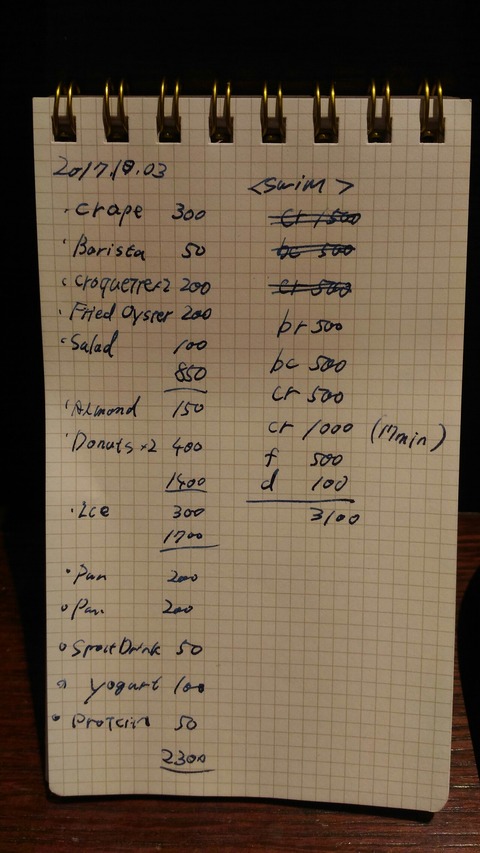 2017.10.03
· Crape 300
· Barista 50
· Croquette×2 200
· Fried Oyster 200
· Salad 100
850
· Almond 150
· Donuts ×2 400
1400
· Ice 300
1700
· Pan 200
· Pan 200
· Sport Drink 50
· Yogurt 100
· Protein 50
2300
<SWIM>
cr 1500
bc 500
cr 500
br 500
bc 500
cr 500
cr 1000 (17min)
f 500
d 100
3100